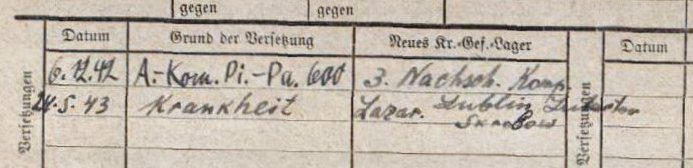 gegen gegen
Versetzungen Datum Grund der Versetzung Neues Kr.-Gef.-Lager Versetzungen Datum
6.12.42 A.-Kom. Pi.-Pa. 600 3. Nachsch. Komp.
24.5.43 Krankheit Lazar. Lublin
Skrobow